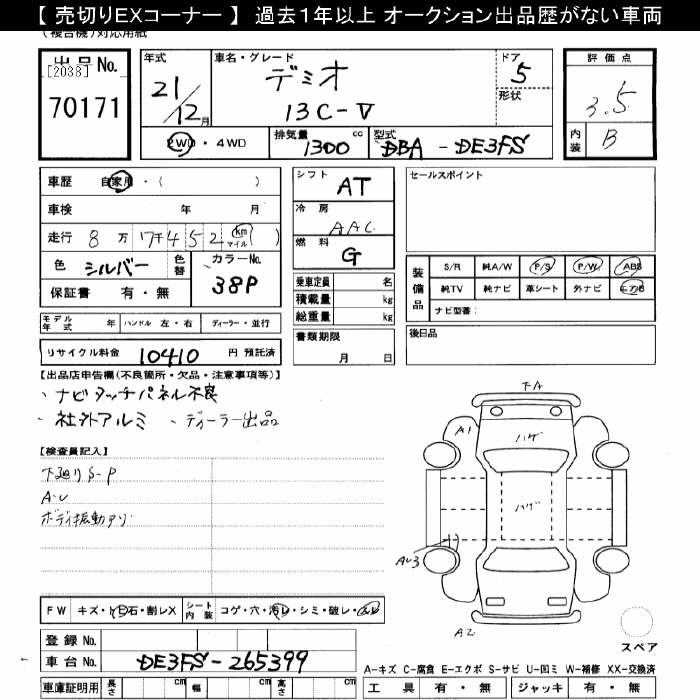 【 売切りEXコーナー 】 過去１年以上 オークション出品歴がない車両
(複合機)対応用紙
出品No.
[2038]
70171
年式
21/12月
車名・グレード
デミオ
13C-V
ドア
5
形状
評価点
3.5
内装
B
2WD・4WD
排気量
1300 cc
型式
DBA - DE3FS
車歴 自家用・( )
車検 年 月
走行 8万 7千 4 5 2 km マイル ( )
色 シルバー 色替
カラーNo.
38P
保証書 有・無
シフト
AT
冷房
AAC
燃料
G
セールスポイント
乗車定員 名
積載量 kg
総重量 kg
装備品
S/R 純A/W P/S P/W ABS
純TV 純ナビ 革シート 外ナビ エアB
ナビ型番：
モデル年式 年 ハンドル 左・右 ディーラー・並行
リサイクル料金 10410 円 預託済
書類期限
月 日
後日品
【出品店申告欄(不良箇所・欠品・注意事項等)】
、ナビタッチパネル不良
・社外アルミ 、ディーラー出品
【検査員記入】
下廻りS-P
A・U
ボディ振動アリ
下A
A1
ハゲ
ハゲ
AU3
A2
スペア
FW キズ・飛石・割レX
シート内装 コゲ・穴・汚レ・シミ・破レ・
登録 No.
車台 No. DE3FS-265399
車庫証明用 長さ cm 幅 cm 高さ cm
A-キズ C-腐食 E-エクボ S-サビ U-凹ミ W-補修 XX-交換済
工具 有・無 ジャッキ 有・無